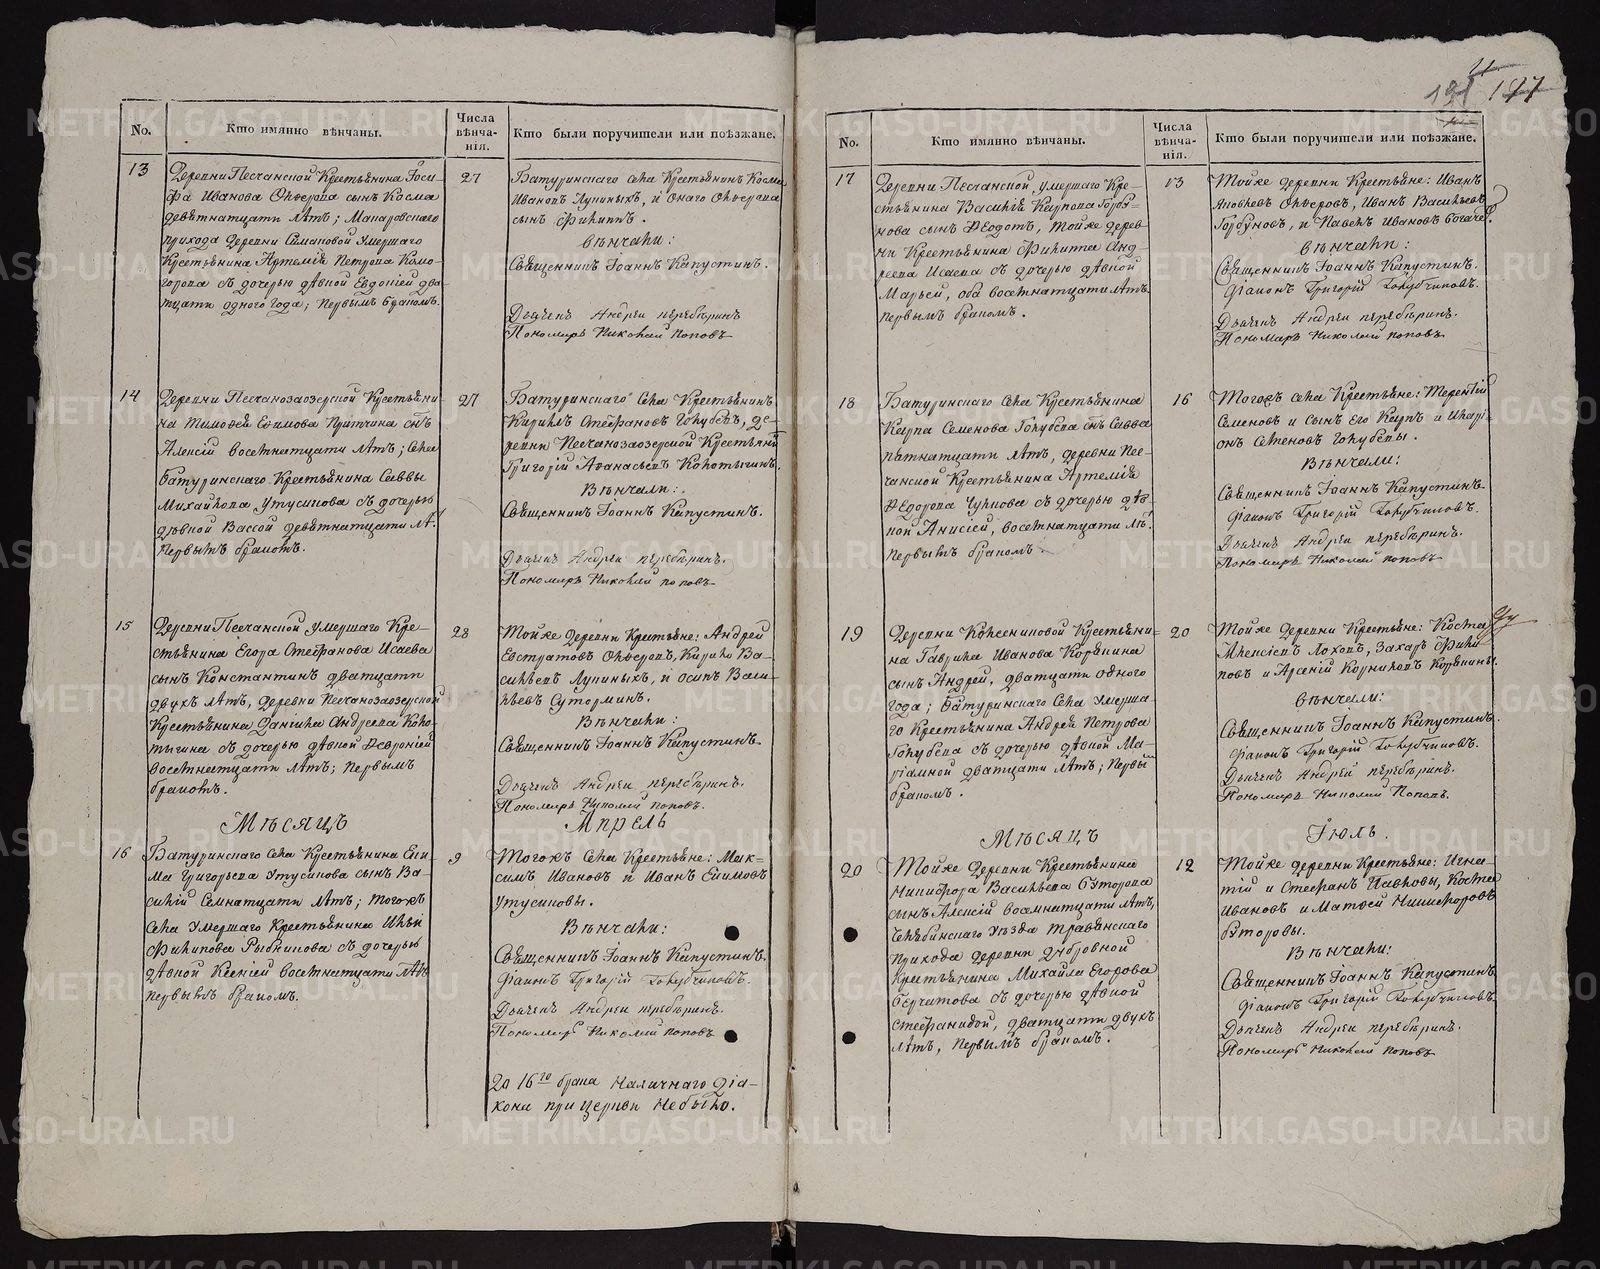 No.
Кто имянно вѣнчаны.
Числа
вѣнча-
нія.
Кто были поручители или поѣзжане.
13
Деревни Песчанской Крестьянина Іоси-
фа Иванова Олферова сынъ Косма
девятнатцати лѣтъ; Макаровскаго
прихода деревни Симановой умершаго
Крестьянина Артемія Петрова Комо-
горова съ дочерью дѣвкой Евдокіей два-
тцати одного года; первымъ бракомъ.
27
Батуринскаго села Крестьянинъ Косма
Ивановъ Лупиныхъ, и онаго Олферова
сынъ Филиппъ.
Вѣнчали:
Священникъ Іоаннъ Капустинъ.
Дьячекъ Андрей перебѣринъ
Пономарь Николай Поповъ
14
Деревни Песчанозаозерской Крестьяни-
на Тимофея Ефимова Притчина снъ
Алексій восемнатцати лѣтъ; села
Батуринскаго Крестьянина Саввы
Михайлова Утусикова съ дочерью
дѣвкой Вассой девятнатцати лѣ.
первымъ бракомъ.
27
Батуринскаго села Крестьянинъ
Кирилъ Стефановъ Голубевъ, де-
ревни Песчанозаозерской Крестьянинъ
Григорій Афанасьевъ Колотыгинъ.
Вѣнчали:
Священникъ Іоаннъ Капустинъ.
Дьячекъ Андрей перебѣринъ.
Пономарь Николай поповъ
15
Деревни Песчанской умершаго Кре-
стьянина Егора Стефанова Исаева
сынъ Константинъ дватцати
двухъ лѣтъ, деревни Песчанозаозерской
Крестьянина Даніила Андреева Коло-
тыгина съ дочерью дѣвкой Февроніей
восемнатцати лѣтъ; первымъ
бракомъ.
28
Тойже деревни Крестьяне: Андрей
Евстратовъ Олферовъ, Кирило Ва-
сильевъ Лупиныхъ, и Осипъ Васи-
льевъ Сутормин.
Вѣнчали:
Священникъ Іоаннъ Капустинъ
Дьячекъ Андрей перебѣринъ.
Пономарь Николай поповъ.
Мѣсяцъ
Апрель
16
Батуринскаго села Крестьянина Ефи-
ма Григорьева Утусикова сынъ Ва-
силій семнатцати лѣтъ; тогожъ
села умершаго Крестьянина Ильи
Филипова Рыбникова съ дочерью
дѣвкой Ксеніей восемнатцати лѣтъ
первымъ бракомъ.
9
Тогожъ села Крестьяне: Мак-
симъ Ивановъ и Иванъ Ефимовъ
Утусиковы.
Вѣнчали:
Священникъ Іоаннъ Капустинъ.
Діаконъ Григорій Голубчиковъ.
Дьячекъ Андрей перебѣринъ.
Пономарь Николай поповъ
До 16го брака наличнаго діа-
кона при церкви не было.
177
No.
Кто имянно вѣнчаны.
Числа
вѣнча-
нія.
Кто были поручители или поѣзжане.
17
Деревни Песчанской, умершаго Кре-
стьянина Василія Карпова Горбу-
нова сынъ Ѳеодотъ, тойже дерев-
ни Крестьянина Филипа Анд-
реева Исаева съ дочерью дѣвкой
Марьей, оба восемнатцати лѣтъ
первымъ бракомъ.
13
Тойже деревни Крестьяне: Иванъ
Яковлевъ Олферовъ, Иванъ Васильевъ
Горбуновъ, и Павелъ Ивановъ Богачев
Вѣнчали:
Священникъ Іоаннъ Капустинъ.
Діаконъ Григорій Голубчиковъ.
Дьячекъ Андрей перебѣринъ.
Пономарь Николай поповъ
18
Батуринскаго села Крестьянина
Карпа Семенова Голубева снъ Савва
пятнатцати лѣтъ, деревни Пес-
чанской Крестьянина Артемія
Ѳедорова Чулкова съ дочерью дѣв-
кой Анисіей, восемнатцати лѣ.
первымъ бракомъ.
16
Тогожъ села Крестьяне: Терентій
Семеновъ и сынъ его Карпъ и Иларі-
онъ Семеновъ Голубевы.
Вѣнчали:
Священникъ Іоаннъ Капустинъ.
Діаконъ Григорій Голубчиковъ.
Дьячекъ Андрей перебѣринъ.
Пономарь Николай поповъ
19
Деревни Колесниковой Крестьяни-
на Гаврила Иванова Корякина
сынъ Андрей, дватцати одного
года; Батуринскаго села умерша-
го Крестьянина Андрея Петрова
Голубева съ дочерью дѣвкой Ма-
ріамной дватцати лѣтъ; первы
бракомъ.
20
Тойже деревни Крестьяне: Коста
Алексѣевъ Лоховъ, Захаръ Фили-
повъ и Арсеній Корниловъ Корякины.
Вѣнчали:
Священникъ Іоаннъ Капустинъ.
Діаконъ Григорій Голубчиковъ.
Дьячекъ Андрей перебѣринъ.
Пономарь Николай Поповъ.
Мѣсяцъ
Іюль.
20
Тойже деревни Крестьянина
Никифора Васильева Буторова
сынъ Алексій восемнатцати лѣтъ,
Челябинскаго уѣзда Травянскаго
прихода деревни Дубровной
Крестьянина Михаила Егорова
Берчатова съ дочерью дѣвкой
Стефанидой, дватцати двухъ
лѣтъ, первымъ бракомъ.
12
Тойже деревни Крестьяне: Игна-
тій и Стефанъ Павловы, Костка
Ивановъ и Матфей Никифоровъ
Буторовы.
Вѣнчали:
Священникъ Іоаннъ Капустинъ
Діаконъ Григорій Голубчиковъ
Дьячекъ Андрей перебѣринъ.
Пономарь Николай поповъ
METRIKI.GASO-URAL.RU